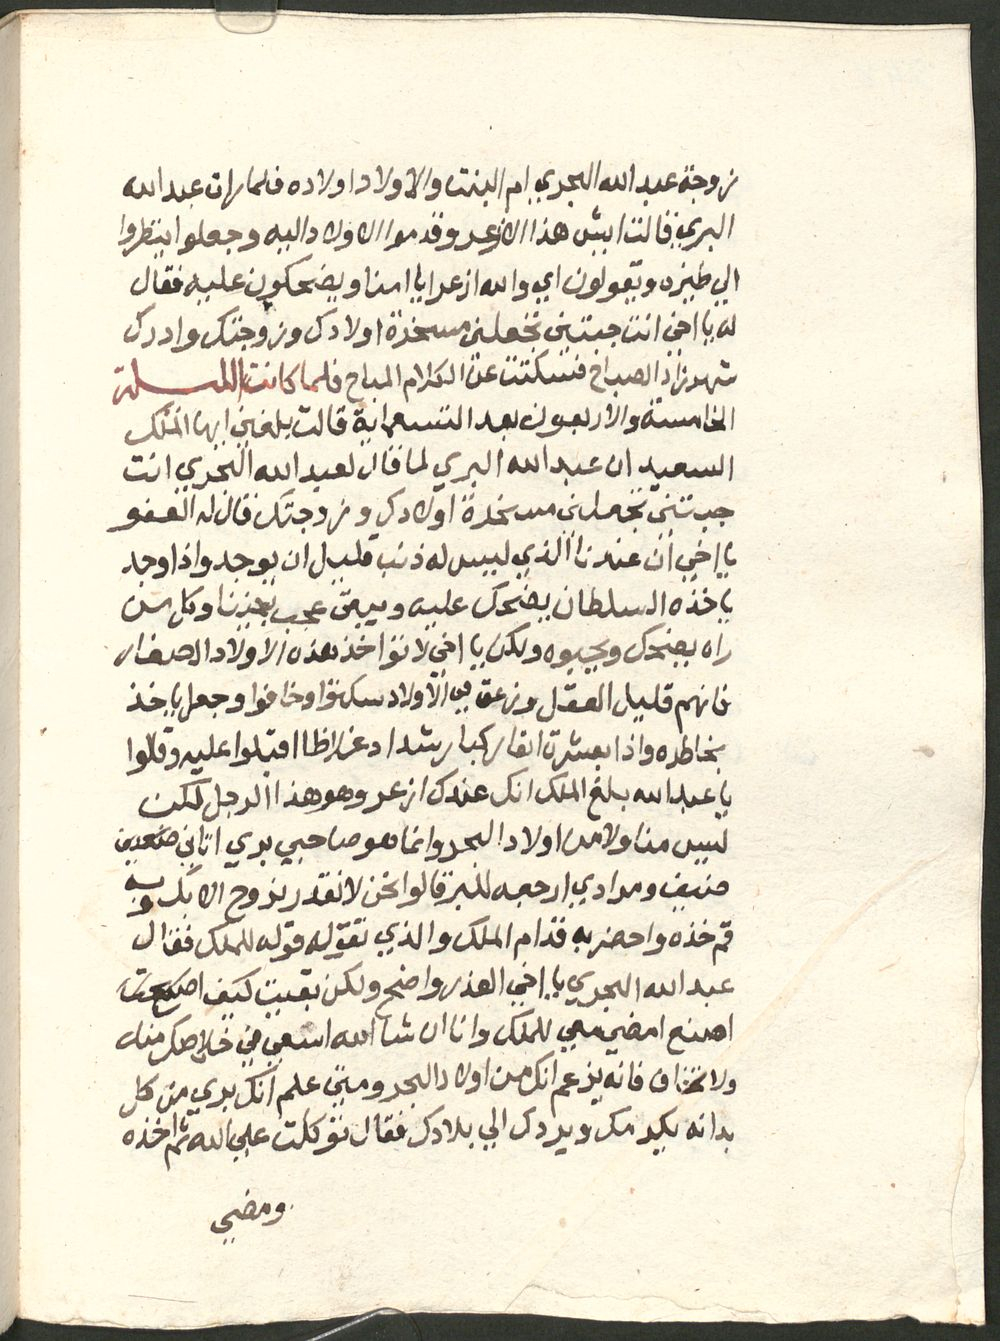 زوجة عبد الله البحري ام البنت والاولاد اولاده فلما رات عبد الله
البري قالت ايش هذا الازعر وقدموا الاولاد اليه وجعلوا ينظروا
الي طيزه ويقولون اي والله ازعر يا امنا ويضحكون عليه فقال
له يا اخي انت جبتيني تجعلني مسخرة اولادك وزوجتك وادرك
شهرزاد الصباح فسكتت عن الكلام المباح فلما كانت الليلة
الخامسة والاربعون بعد التسعماية قالت بلغني ايها الملك
السعيد ان عبد الله البري لما قال لعبد الله البحري انت
جبتني تجعلني مسخرة اولادك وزوجتك قال له العفو
يا اخي ان عندنا الذي ليس له ذنب قليل ان يوجد واذا وجد
ياخذه السلطان يضحك عليه ويبقي عجب بيننا وكل من
راه يضحك ويجيوه ولكن يا اخي لا تواخذ هذه الاولاد الصغار
فانهم قليل العقل وزعق في الاولاد سكتوا وخافوا وجعل ياخذ
بخاطره واذا بعشرة انفار كبار شداد غلاظا اقبلوا عليه وقالوا
يا عبد الله بلغ الملك انك عندك ازعر وهو هذا الرجل لكن
ليس منا ولا من اولاد البحر وانما هو صاحبي بري اتاني
ضيف ومرادي ارجعه للبر قالوا نحن لا نقدر نروح الا بك وبه
قم خذه واحضر به قدام الملك والذي تقوله قوله للملك فقال
عبد الله البحري يا اخي العذر واضح ولكن بقيت كيف
اصنع امضي معي للملك وانا ان شا الله اسعي في خلاصك منه
ولا تخاف فانه يزعم انك من اولاد البحر ومتي علم انك بري من كل
بد انه يكرمك ويردك الي بلادك فقال توكلت علي الله ثم اخذه
ومضي